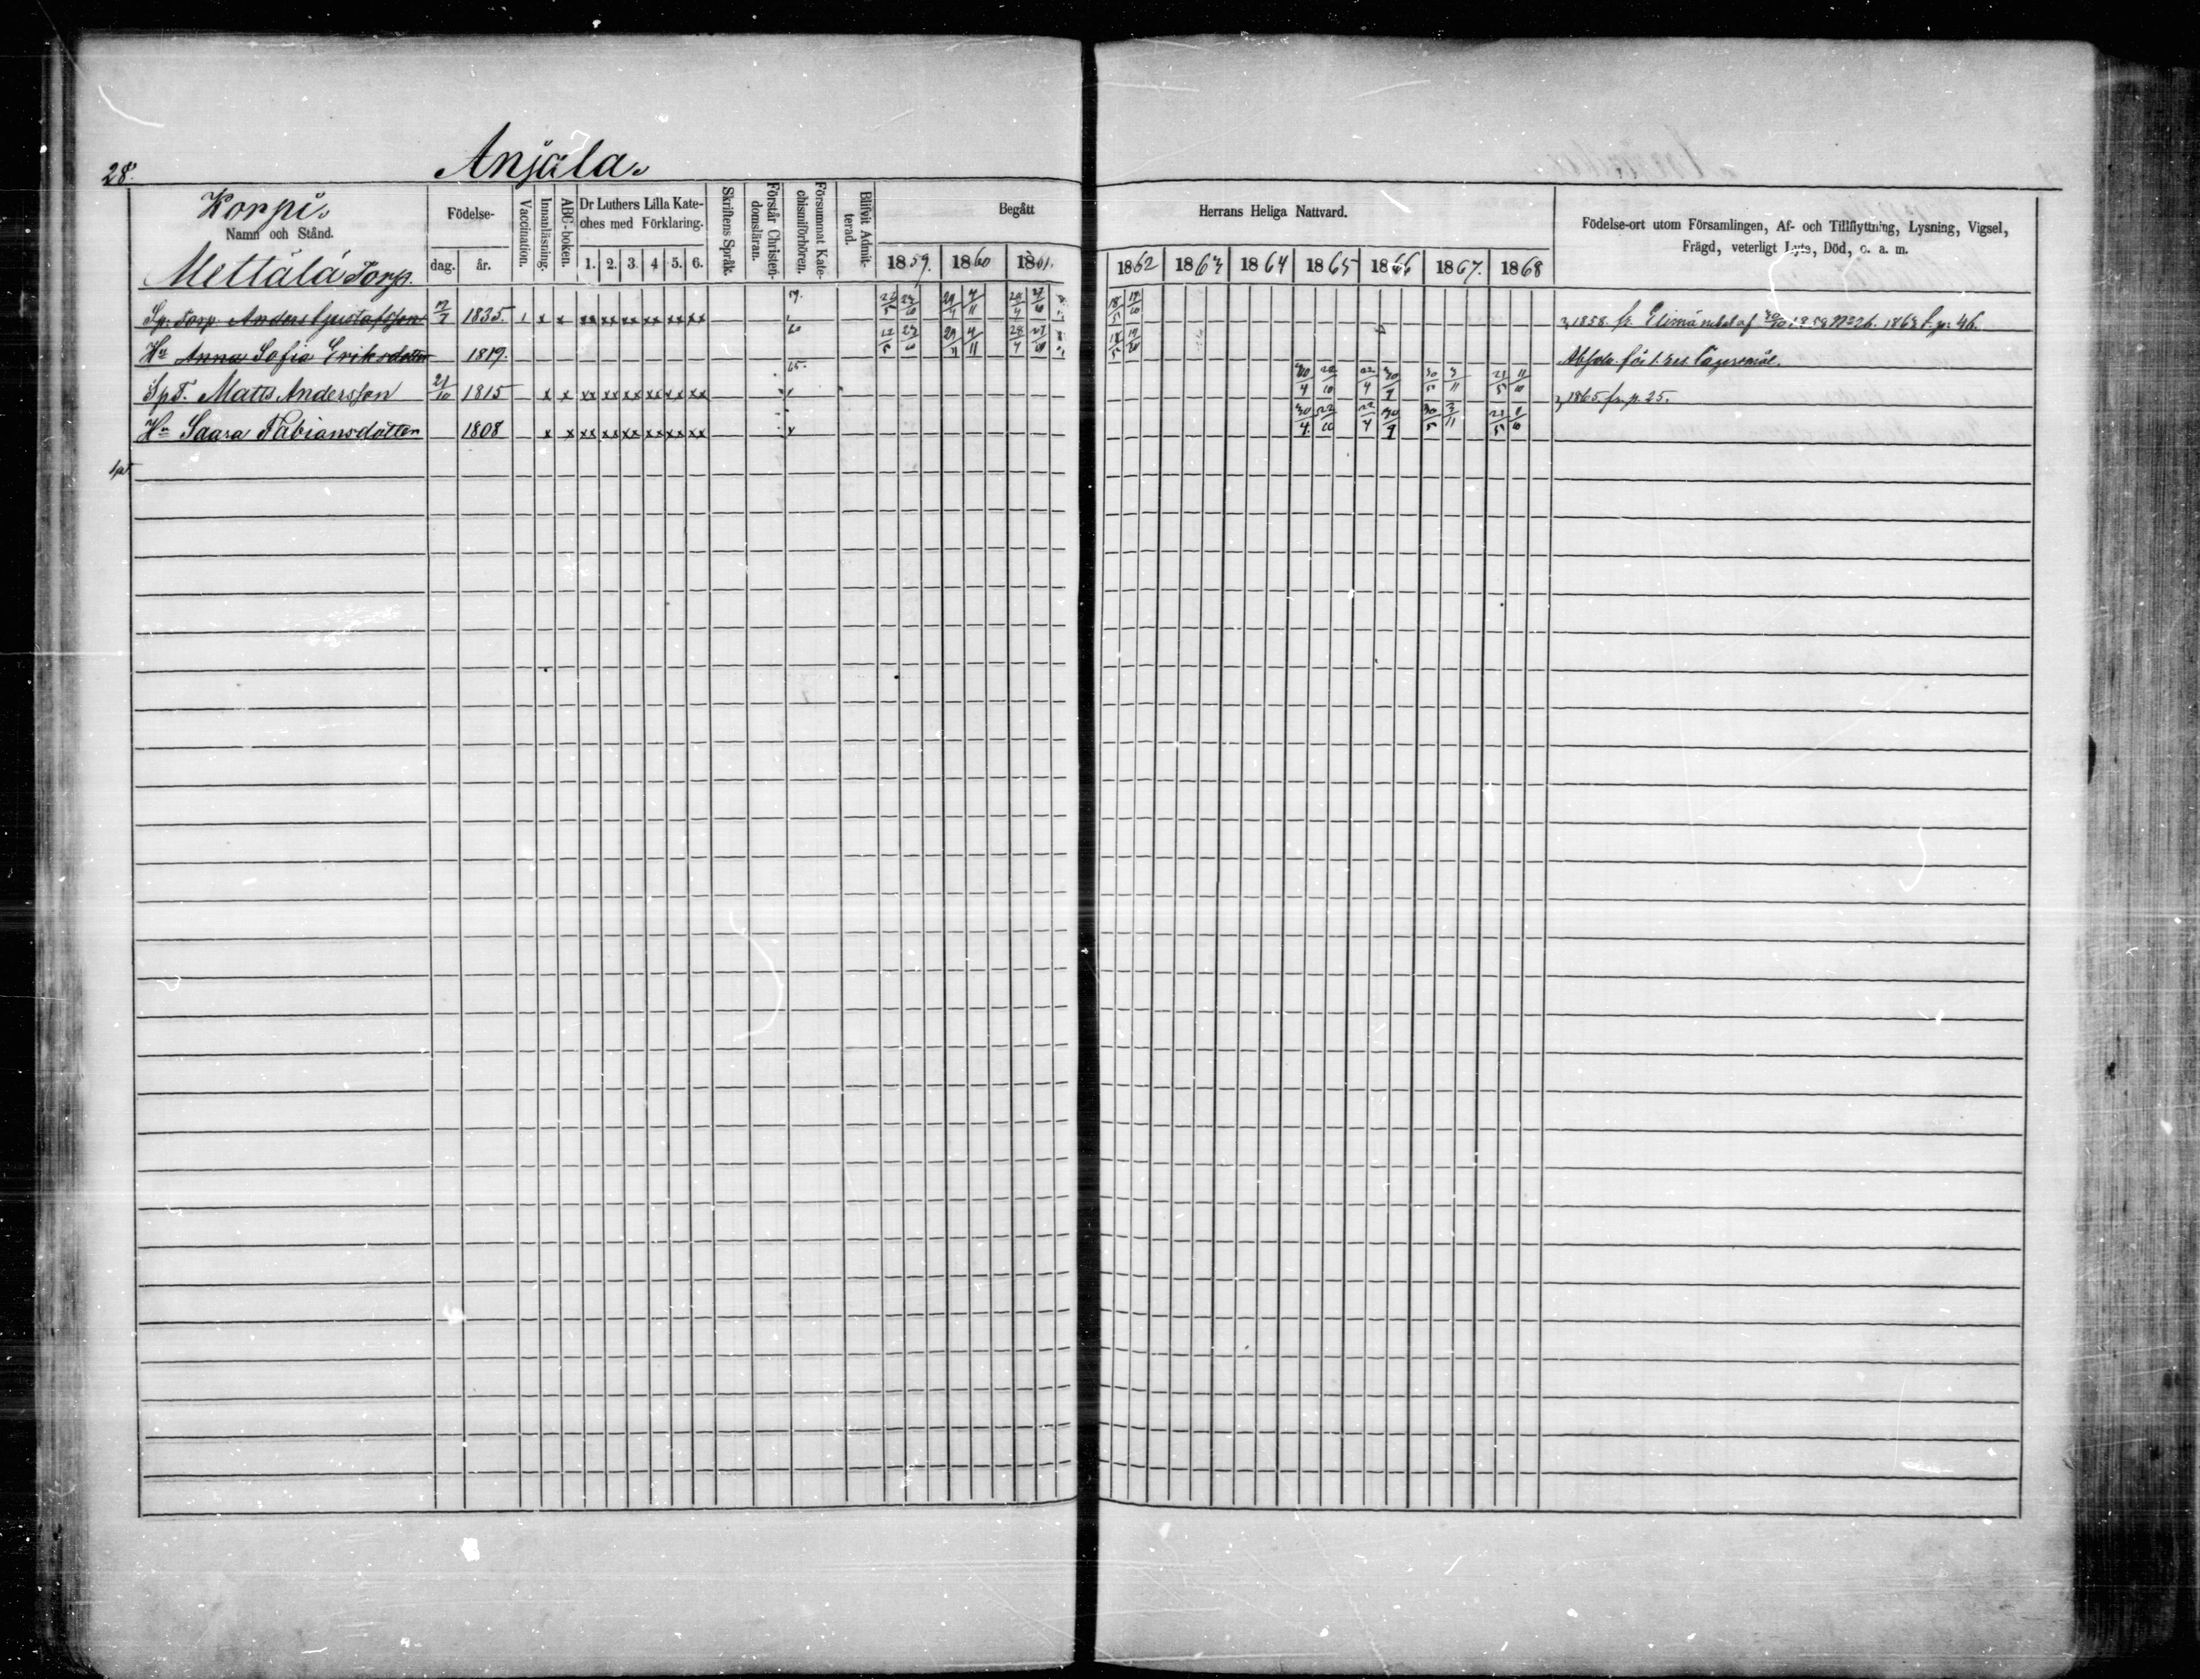 28.
Anjala.
Korpi.
Namn och Stånd.
Födelse-
dag. år.
Vaccination.
Innanläsning.
ABC-boken.
Dr Luthers Lilla Kate-
ches med Förklaring.
1. 2. 3. 4 5. 6.
Skriftens Språk.
Förstår Christen-
domsläran.
Försummat Kate-
chismiförhören.
Blifvit Admit-
terad.
Begått
1859. 1860 1861.
Herrans Heliga Nattvard.
1862 1863 1864 1865 1866 1867. 1868
Födelse-ort utom Församlingen, Af- och Tillflyttning, Lysning, Vigsel,
Frägd, veterligt Lyte, Död, c. a. m.
Mettälä Torp.
Sp. Torp. Anders Gustafsson 1835. x x xx xx xx xx xx xx 1858. fr. Elimä 1859 No 26. 1863 p. 46.
Hu Anna Sofia Eriksdotter 1819. Absolv. för
Sp T. Matts Andersson 21/10 1815 x x xx xx xx xx xx xx 1865. fr. p. 25.
Hu Saara Fabiansdotter 1808 x x xx xx xx xx xx xx x